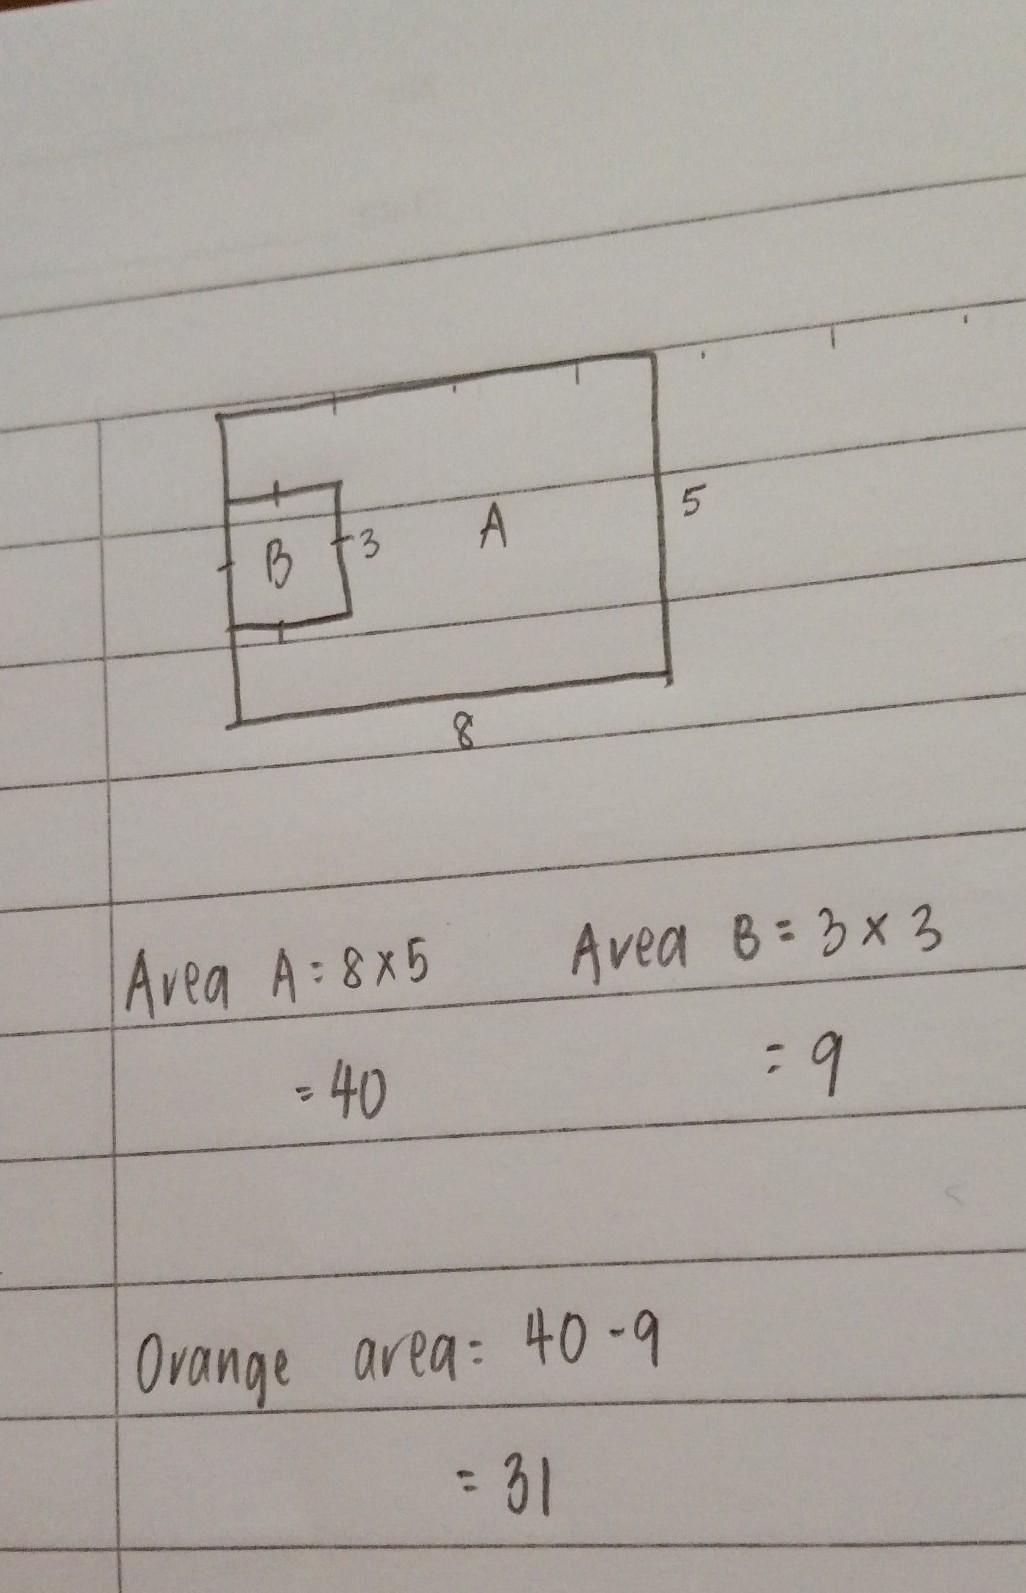 B
3
A
5
8
Area A = 8 × 5
Area B = 3 × 3
= 40
= 9
Orange area = 40 - 9
= 31